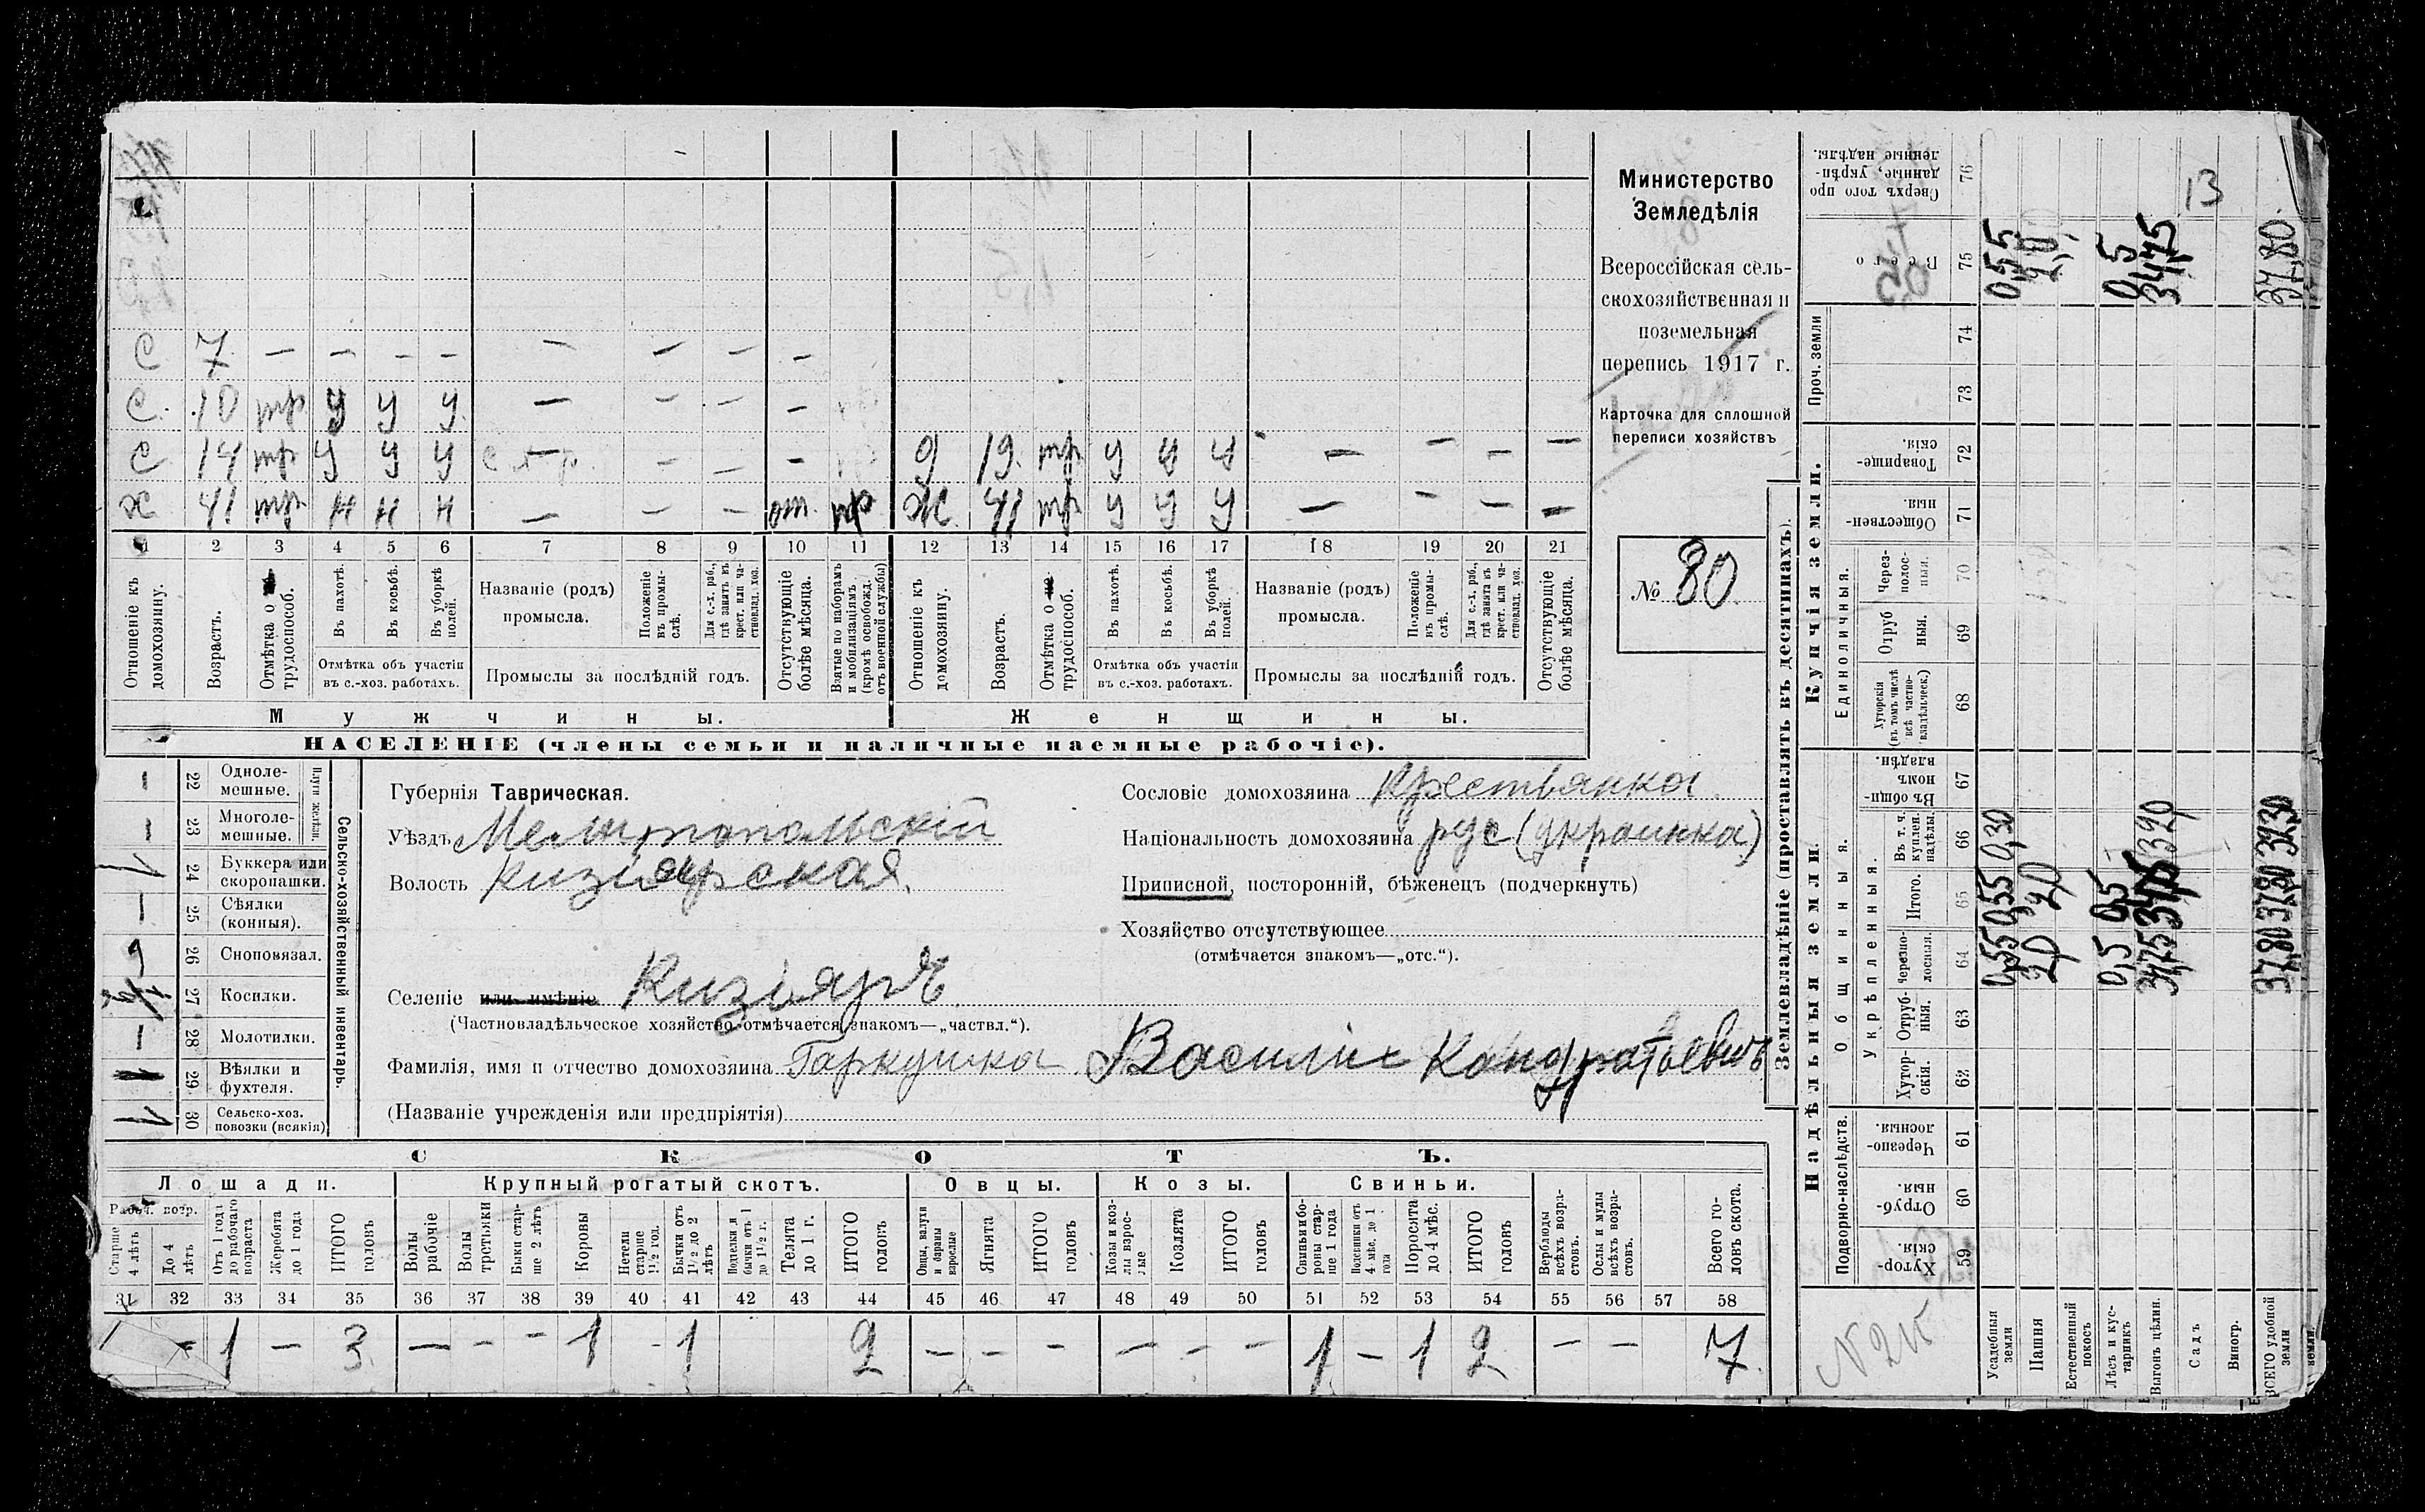 С 7 — — — — — — — —
С. 10 тр у у у — — — —
С 14 тр у у у — — — —
д 19. тр у у у — — — —
Ж 41 тр н н н — — — от. пр
Ж. 41 тр у у у — — — —
1 2 3 4 5 6 7 8 9 10 11 12 13 14 15 16 17 18 19 20 21
Отношеніе къ домохозяину.
Возрастъ.
Отмѣтка о трудоспособ.
Въ пахотѣ.
Въ косьбѣ.
Въ уборкѣ полей.
Отмѣтка объ участіи въ с.-хоз. работахъ.
Названіе (родъ) промысла.
Положеніе въ промыслѣ.
Для с.-х. раб., гдѣ занятъ въ крест. или частновлад. хоз.
Промыслы за послѣдній годъ.
Отсутствующіе болѣе мѣсяца.
Взятые по наборамъ и мобилизаціямъ (кромѣ освобожд. отъ военной службы)
Отношеніе къ домохозяину.
Возрастъ.
Отмѣтка о трудоспособ.
Въ пахотѣ.
Въ косьбѣ.
Въ уборкѣ полей.
Отмѣтка объ участіи въ с.-хоз. работахъ.
Названіе (родъ) промысла.
Положеніе въ промыслѣ.
Для с.-х. раб., гдѣ занята въ крест. или частновлад. хоз.
Промыслы за послѣдній годъ.
Отсутствующіе болѣе мѣсяца.
Мужчины.
Женщины.
НАСЕЛЕНІЕ (члены семьи и наличные наемные рабочіе).
Министерство
Земледѣлія
Всероссійская сель-
скохозяйственная и
поземельная
перепись 1917 г.
Карточка для сплошной
переписи хозяйствъ
№ 80
Сельско-хозяйственный инвентарь.
Плуги желѣзн.
— 22 Одноле-мешные.
— 23 Многоле-мешные.
1 24 Буккера или скоропашки.
— 25 Сѣялки (конныя).
26 Сноповязал.
27 Косилки.
— 28 Молотилки.
1 29 Вѣялки и фухтеля.
1 30 Сельско-хоз. повозки (всякія)
Губернія Таврическая.
Уѣздъ Мелитопольскій
Волость Кизіярская.
Селеніе или имѣніе Кизіяръ
(Частновладѣльческое хозяйство отмѣчается знакомъ—„частвл.“).
Сословіе домохозяина Крестьянка
Національность домохозяина рус (украинка)
Приписной, посторонній, бѣженецъ (подчеркнуть)
Хозяйство отсутствующее
(отмѣчается знакомъ—„отс.“).
Фамилія, имя и отчество домохозяина Гаркушка Василій Кондратьевичъ
(Названіе учрежденія или предпріятія)
СКОТЪ.
Лошади. Крупный рогатый скотъ. Овцы. Козы. Свиньи.
Рабоч. возр.
Старше 4 лѣтъ
До 4 лѣтъ
Отъ 1 года до рабочаго возраста
Жеребята до 1 года
ИТОГО головъ
Волы рабочіе
Волы третьяки
Быки старше 2 лѣтъ
Коровы
Нетели старше 1½ год.
Бычки отъ 1½ до 2 лѣтъ
Подтелки и бычки отъ 1 до 1½ г.
Телята до 1 г.
ИТОГО головъ
Овцы, валухи и бараны взрослые
Ягнята
ИТОГО головъ
Козы и козлы взрослые
Козлята
ИТОГО головъ
Свиньи и боровы старше 1 года
Подсвинки отъ 4 мѣс. до 1 года
Поросята до 4 мѣс.
ИТОГО головъ
Верблюды всѣхъ возрастовъ.
Ослы и мулы всѣхъ возрастовъ.
Всего головъ скота.
31 32 33 34 35 36 37 38 39 40 41 42 43 44 45 46 47 48 49 50 51 52 53 54 55 56 57 58
— 1 — 3 — — — 1 - 1 2 — — — — — — 1 — 1 2 — — 7
Землевладѣніе (проставлять въ десятинахъ).
Купчія земли.
Надѣльныя земли.
Сверхъ того проданные, укрѣпленные надѣлы. 76
Всего 75
Проч. земли 74 73
Товарищескія. 72
Общественныя. 71
Единоличныя.
Черезполосныя. 70
Отрубныя. 69
Хуторскія (въ томъ числѣ всѣ частновладѣльческ.) 68
Общинныя.
Въ общинномъ владѣн. 67
Укрѣпленныя.
Въ т. ч. куплен. надѣлы. 66
Итого. 65
Черезполосныя. 64
Отрубныя. 63
Хуторскія. 62
Подворно-наслѣдств.
Черезполосныя. 61
Отрубныя. 60
Хуторскія. 59
N 215
Усадебныя земли 0,55 0,55 0,30 0,55
Пашня
Естественный покосъ
Лѣсъ и кустарникъ 0,5 0,5 0,5
Выгонъ цѣлин.
Садъ 13
Виногр.
ВСЕГО удобной земли 37,80 37,80 37,80